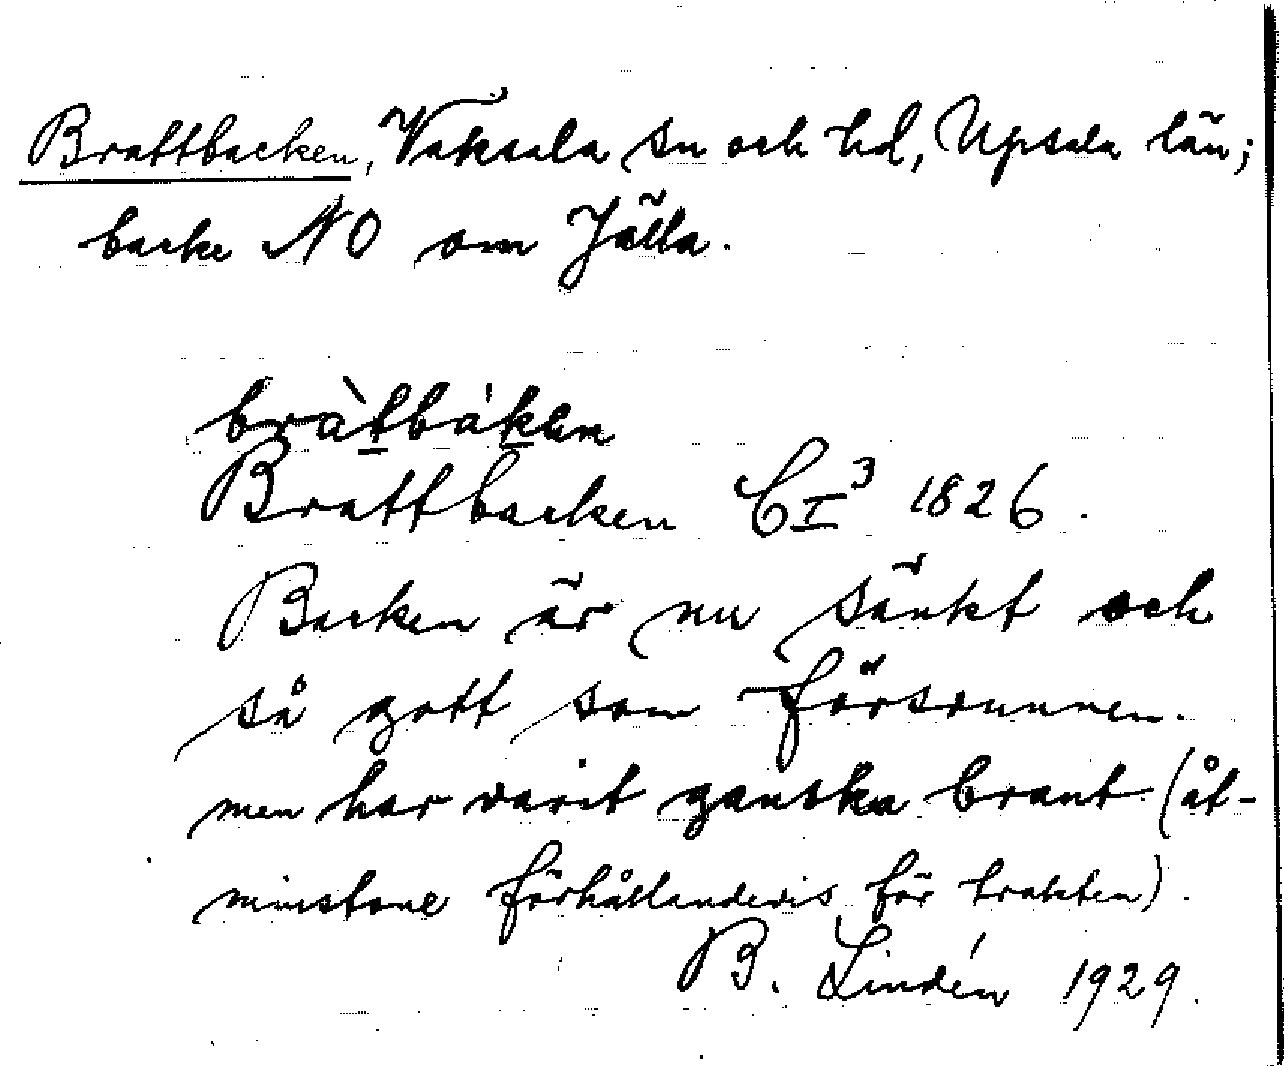 Brattbacken, Vaksala sn och hd, Upsala län;
backe NO om Jälla.
bràt̲bák̲en
Brattbacken C I³ 1826.
Backen är nu sänkt och
så gott som försvunnen.
men har varit ganska brant (åt-
minstone förhållandevis för trakten).
B. Lindén 1929.